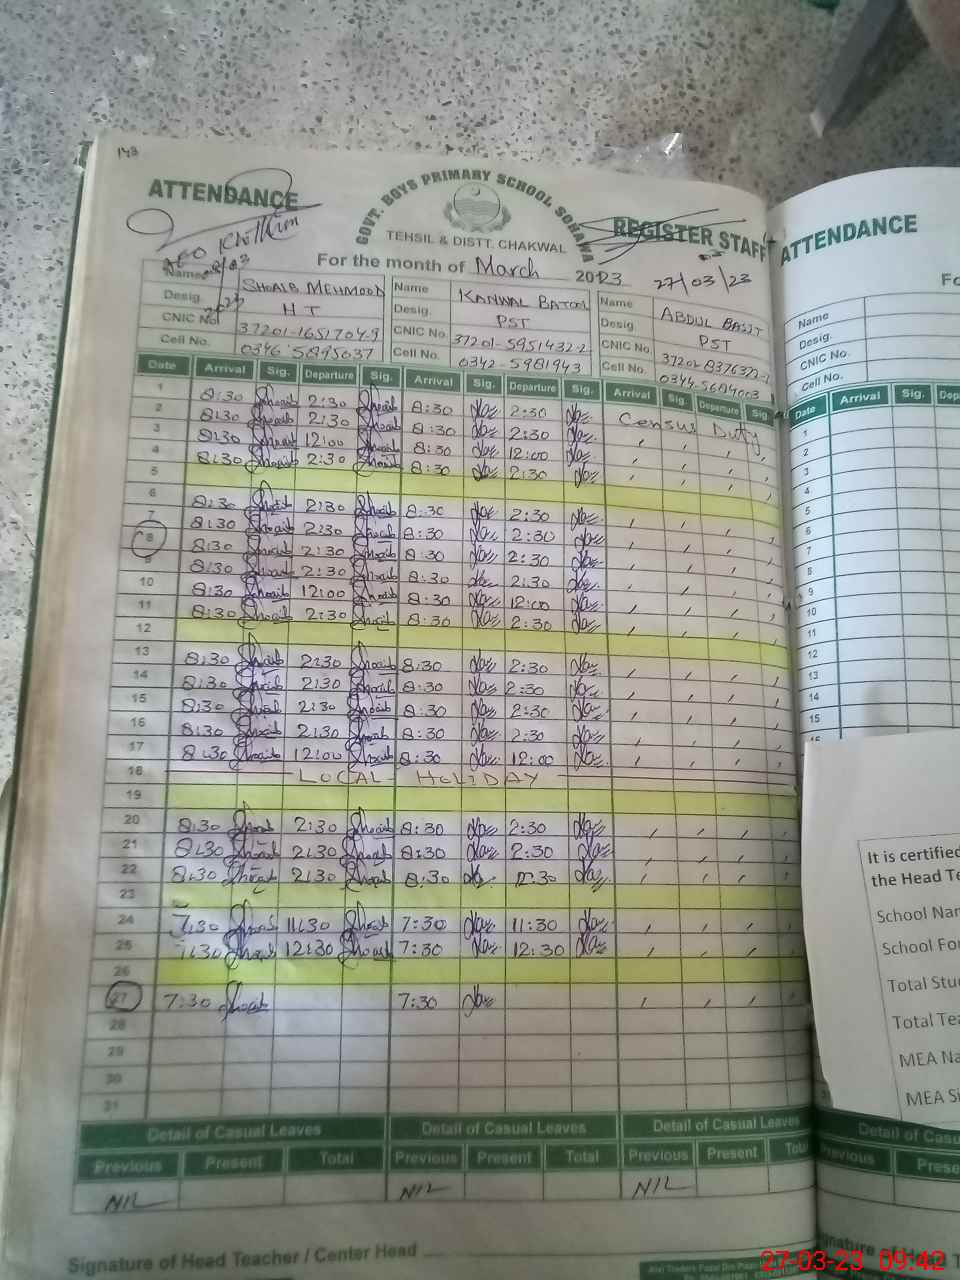 143
ATTENDANCE
GOVT. BOYS PRIMARY SCHOOL SOHAWA
REGISTER STAFF
TEHSIL & DISTT. CHAKWAL
For the month of March 2023
27/03/23
AEO
Name SHOAIB MEHMOOD Name KANWAL BATOOL Name ABDUL BASIT
Desig. HT Desig. PST Desig. PST
CNIC No. CNIC No. 37201-5951432-2 CNIC No.
Cell No. 0346 5895037 Cell No. 0342-5981943 Cell No. 0344-5684003
Date Arrival Sig. Departure Sig. Arrival Sig. Departure Sig. Arrival Sig. Departure Sig.
1 8:30 Shoaib 2:30 Shoaib 8:30 2:30 Census Duty
2 8:30 Shoaib 2:30 Shoaib 8:30 2:30 , , , ,
3 8:30 Shoaib 12:00 Shoaib 8:30 12:00 , , , ,
4 8:30 Shoaib 2:30 Shoaib 8:30 2:30 , , , ,
5
6 8:30 Shoaib 2:30 Shoaib 8:30 2:30 , , , ,
7 8:30 Shoaib 2:30 Shoaib 8:30 2:30 , , , ,
8 8:30 Shoaib 2:30 Shoaib 8:30 2:30 , , , ,
9 8:30 Shoaib 2:30 Shoaib 8:30 2:30 , , , ,
10 8:30 Shoaib 12:00 Shoaib 8:30 12:00 , , , ,
11 8:30 Shoaib 2:30 Shoaib 8:30 2:30 , , , ,
12
13 8:30 Shoaib 2:30 Shoaib 8:30 2:30 , , , ,
14 8:30 Shoaib 2:30 Shoaib 8:30 2:30 , , , ,
15 8:30 Shoaib 2:30 Shoaib 8:30 2:30 , , , ,
16 8:30 Shoaib 2:30 Shoaib 8:30 2:30 , , , ,
17 8:30 Shoaib 12:00 Shoaib 8:30 12:00 , , , ,
18 LOCAL HOLIDAY
19
20 8:30 Shoaib 2:30 Shoaib 8:30 2:30 , , , ,
21 8:30 Shoaib 2:30 Shoaib 8:30 2:30 , , , ,
22 8:30 Shoaib 2:30 Shoaib 8:30 , , , ,
23
24 7:30 Shoaib 11:30 Shoaib 7:30 11:30 , , , ,
25 7:30 Shoaib 12:30 Shoaib 7:30 12:30 , , , ,
26
27 7:30 Shoaib 7:30 , , , ,
28
29
30
31
Detail of Casual Leaves Detail of Casual Leaves Detail of Casual Leaves
Previous Present Total Previous Present Total Previous Present
NIL NIL NIL
Signature of Head Teacher / Center Head
ATTENDANCE
Name
Desig.
CNIC No.
Cell No.
Date Arrival Sig.
1
2
3
4
5
6
7
8
9
10
11
12
13
14
15
It is certified
the Head
School
School
Total
Total
MEA
MEA
Detail of
Previous
27-03-23 09:42